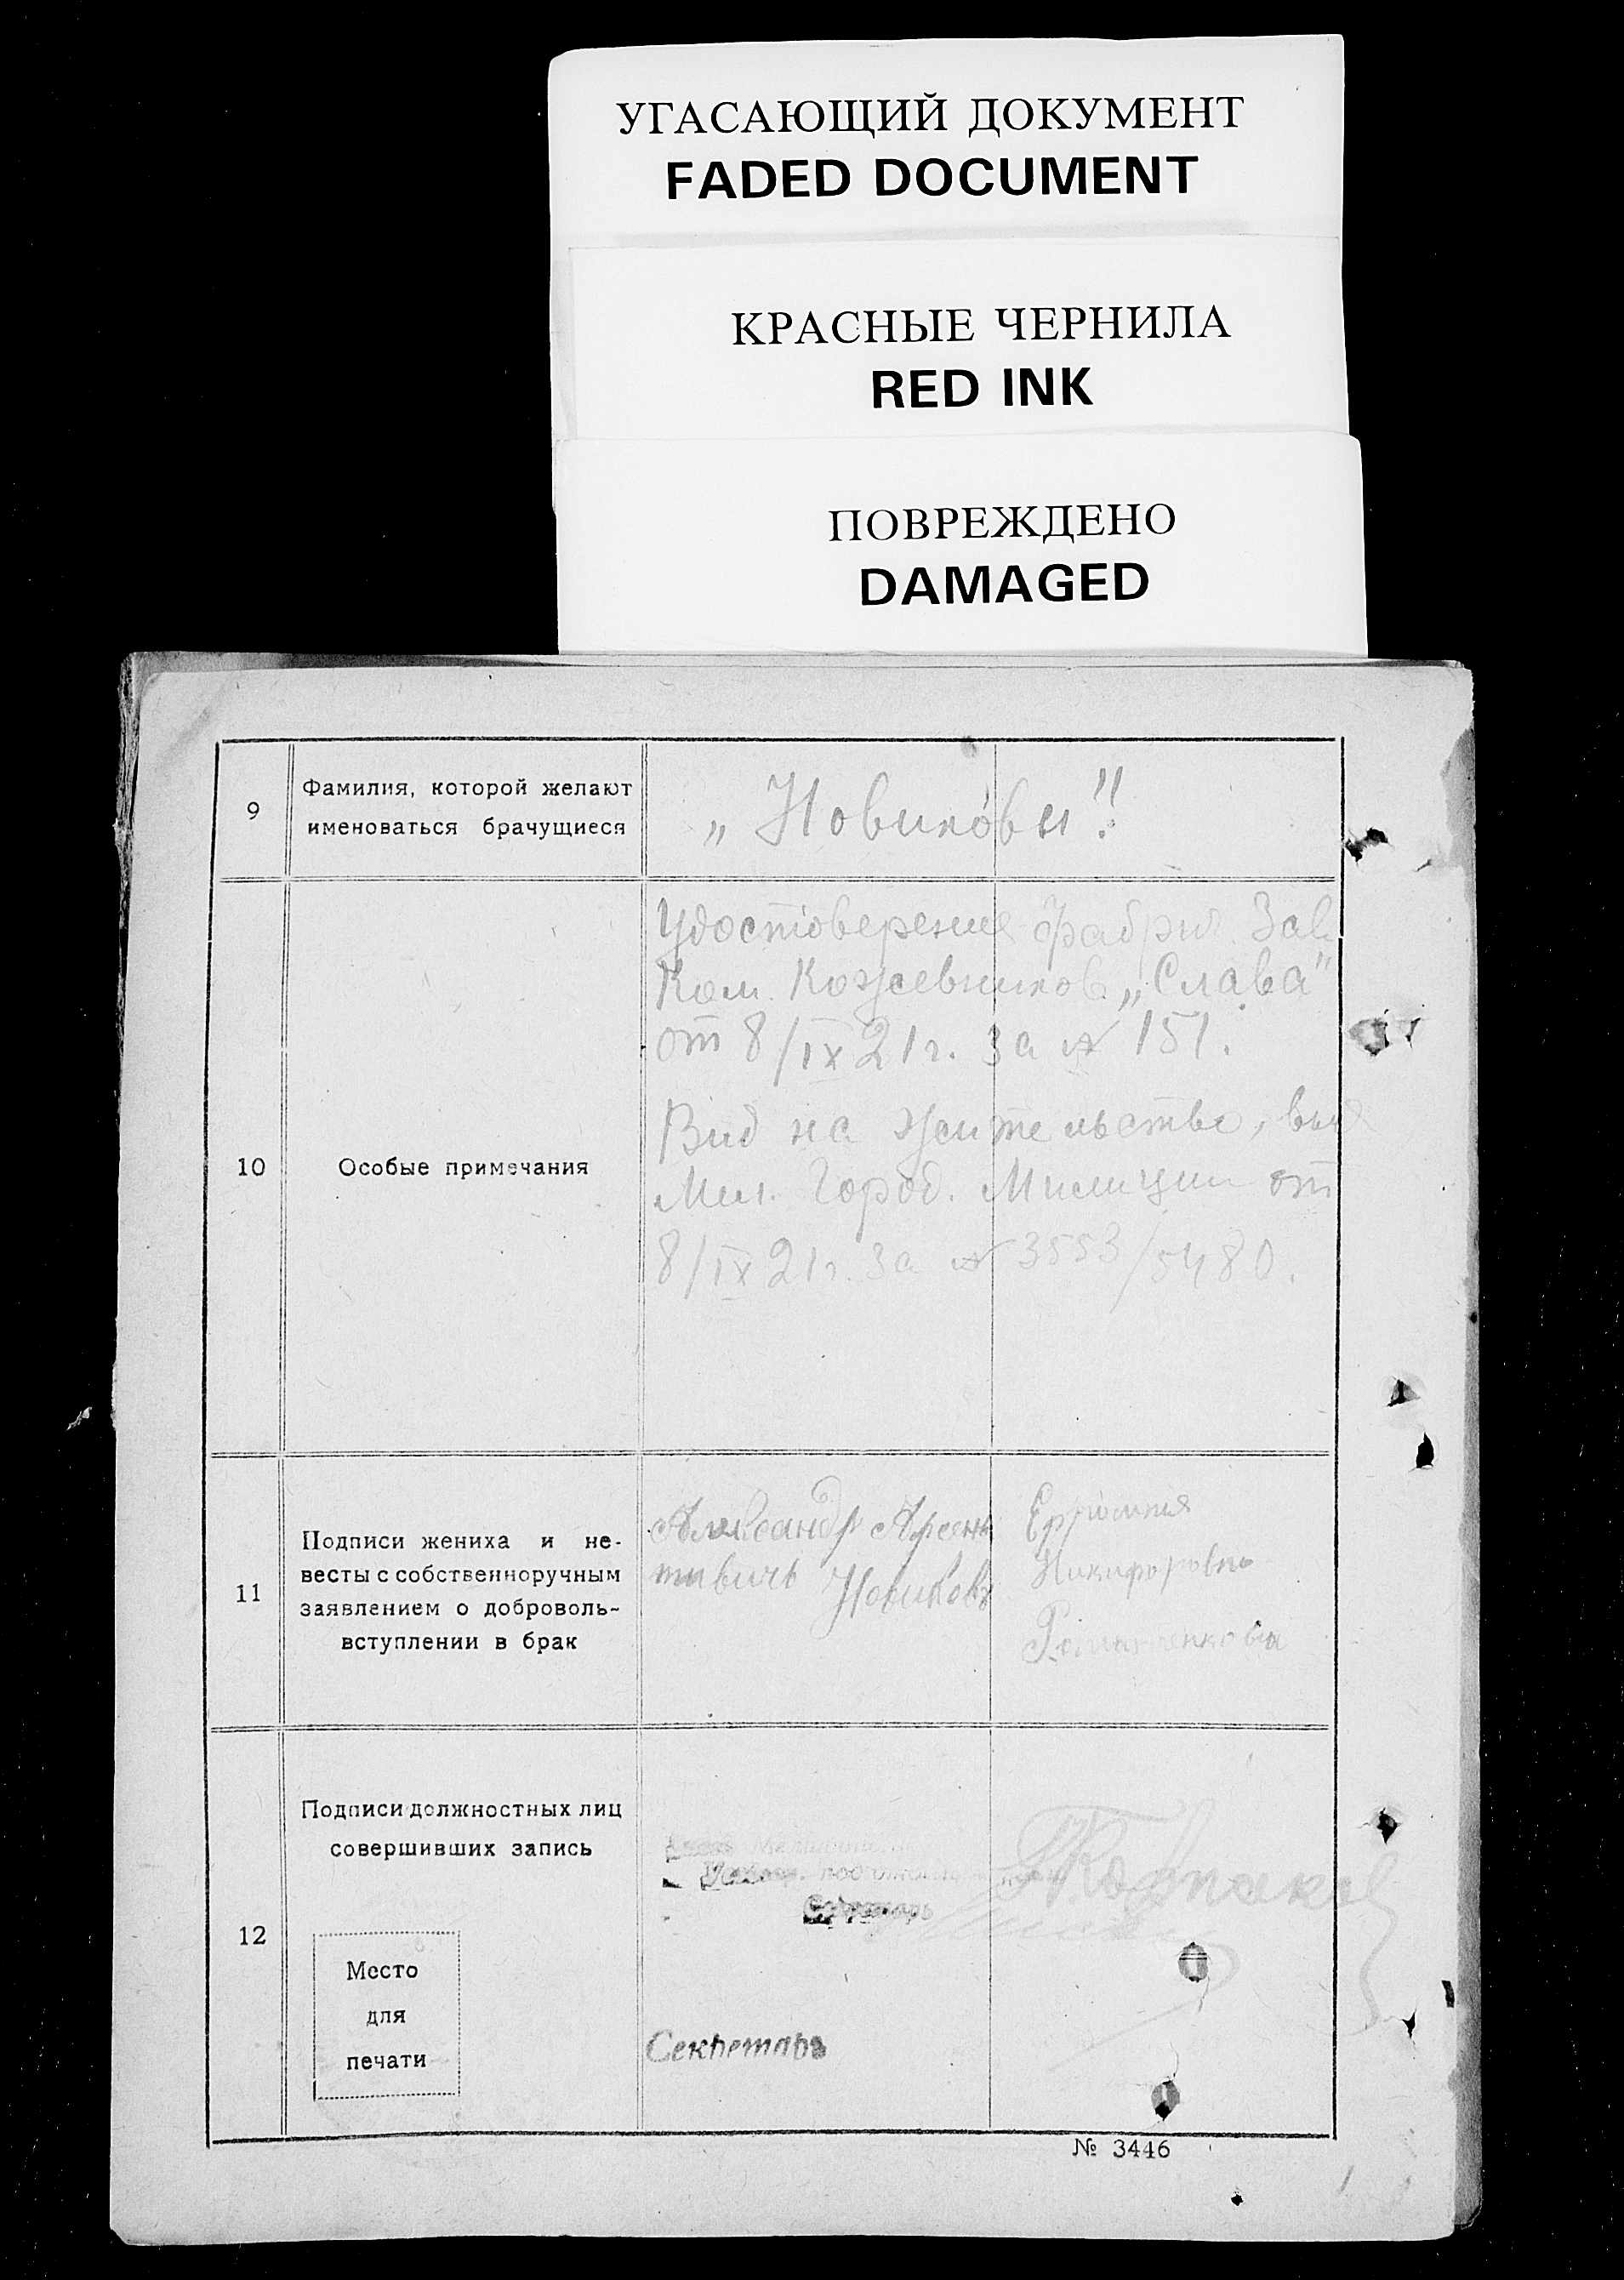 УГАСАЮЩИЙ ДОКУМЕНТ
FADED DOCUMENT
КРАСНЫЕ ЧЕРНИЛА
RED INK
ПОВРЕЖДЕНО
DAMAGED
9
Фамилия, которой желают
именоваться брачущиеся
„Новиковы".
10
Особые примечания
Удостоверение Фабрич. Зав.
Ком. Кожевников „Слава"
от 8/IX 21 г. за № 151.
Вид на жительство, выд
Мил. Город. Милиции от
8/IX 21 г. за № 3553/5480.
11
Подписи жениха и не-
весты с собственноручным
заявлением о доброволь-
вступлении в брак
Александр Арсень
тивичь Новиковъ
Никифоровна
12
Подписи должностных лиц
совершивших запись
Секретарь
Место
для
печати
Секретарь
№ 3446